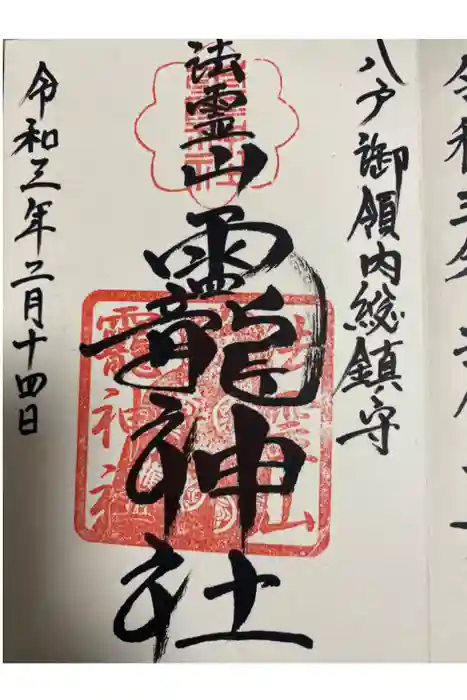 八戸御領内総鎮守
法霊山龗神社
令和三年二月十四日
法霊山
龗神社